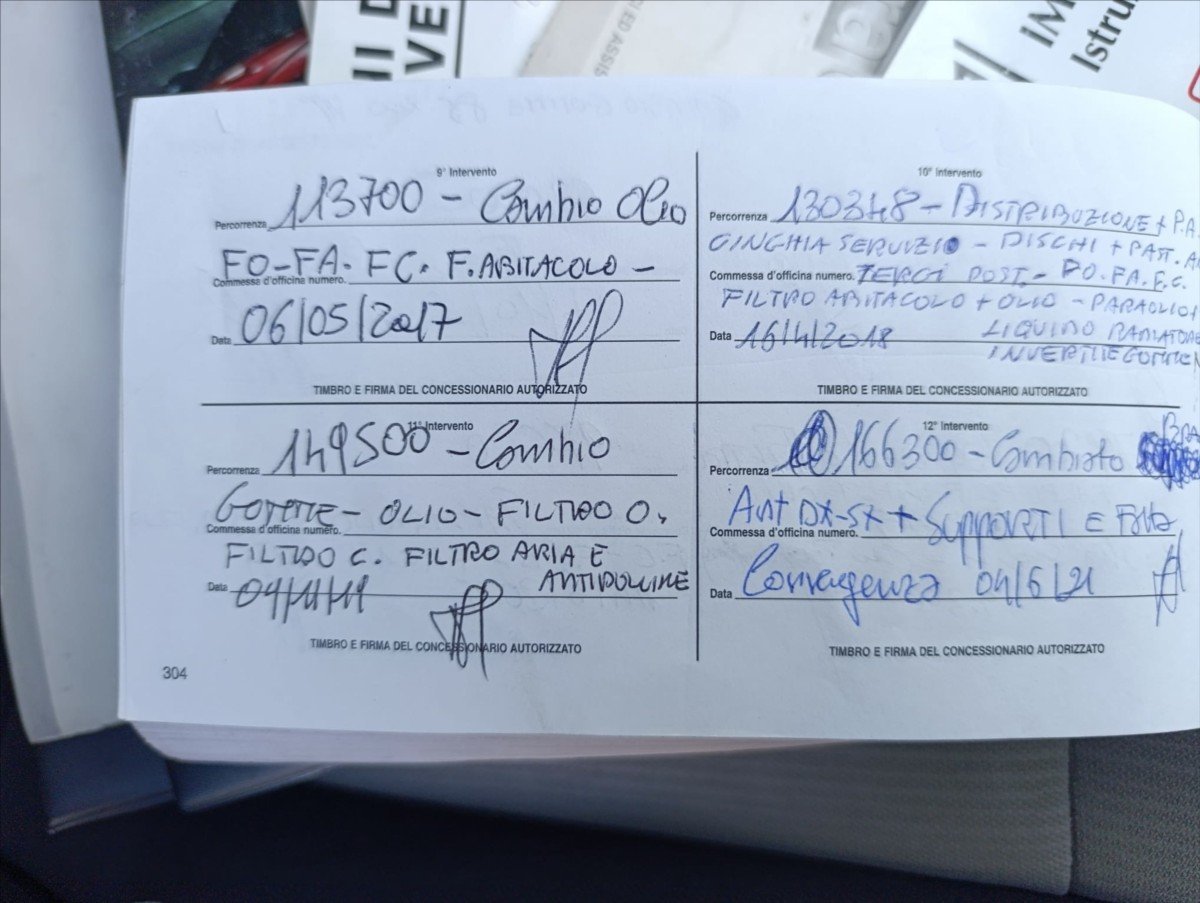 HI D
VE
CI ED ASSIS
iM
Istru
9° Intervento
Percorrenza 113700 - Cambio Olio
FO-FA. FC. F. ABITACOLO -
Commessa d'officina numero.
Data 06/05/2017
TIMBRO E FIRMA DEL CONCESSIONARIO AUTORIZZATO
10° Intervento
Percorrenza 130348 - DISTRIBUZIONE + P.A
CINGHIA SERVIZIO - DISCHI + PAST. A
Commessa d'officina numero. TERGI POST. - FO. FA. F.C.
FILTRO ABITACOLO + OLIO - PARAOLIO
Data 16/4/2018 LIQUIDO RADIATORE
INVERTITE GOMME
TIMBRO E FIRMA DEL CONCESSIONARIO AUTORIZZATO
11° Intervento
Percorrenza 149500 - Cambio
GOMME - OLIO - FILTRO O.
Commessa d'officina numero.
FILTRO C. FILTRO ARIA E
Data 04/11/19 ANTIPOLLINE
TIMBRO E FIRMA DEL CONCESSIONARIO AUTORIZZATO
12° Intervento
BRA
Percorrenza 166300 - Cambiato
Ant DX-SX + Supporti E
Commessa d'officina numero.
Data Convergenza 04/6/21
TIMBRO E FIRMA DEL CONCESSIONARIO AUTORIZZATO
304